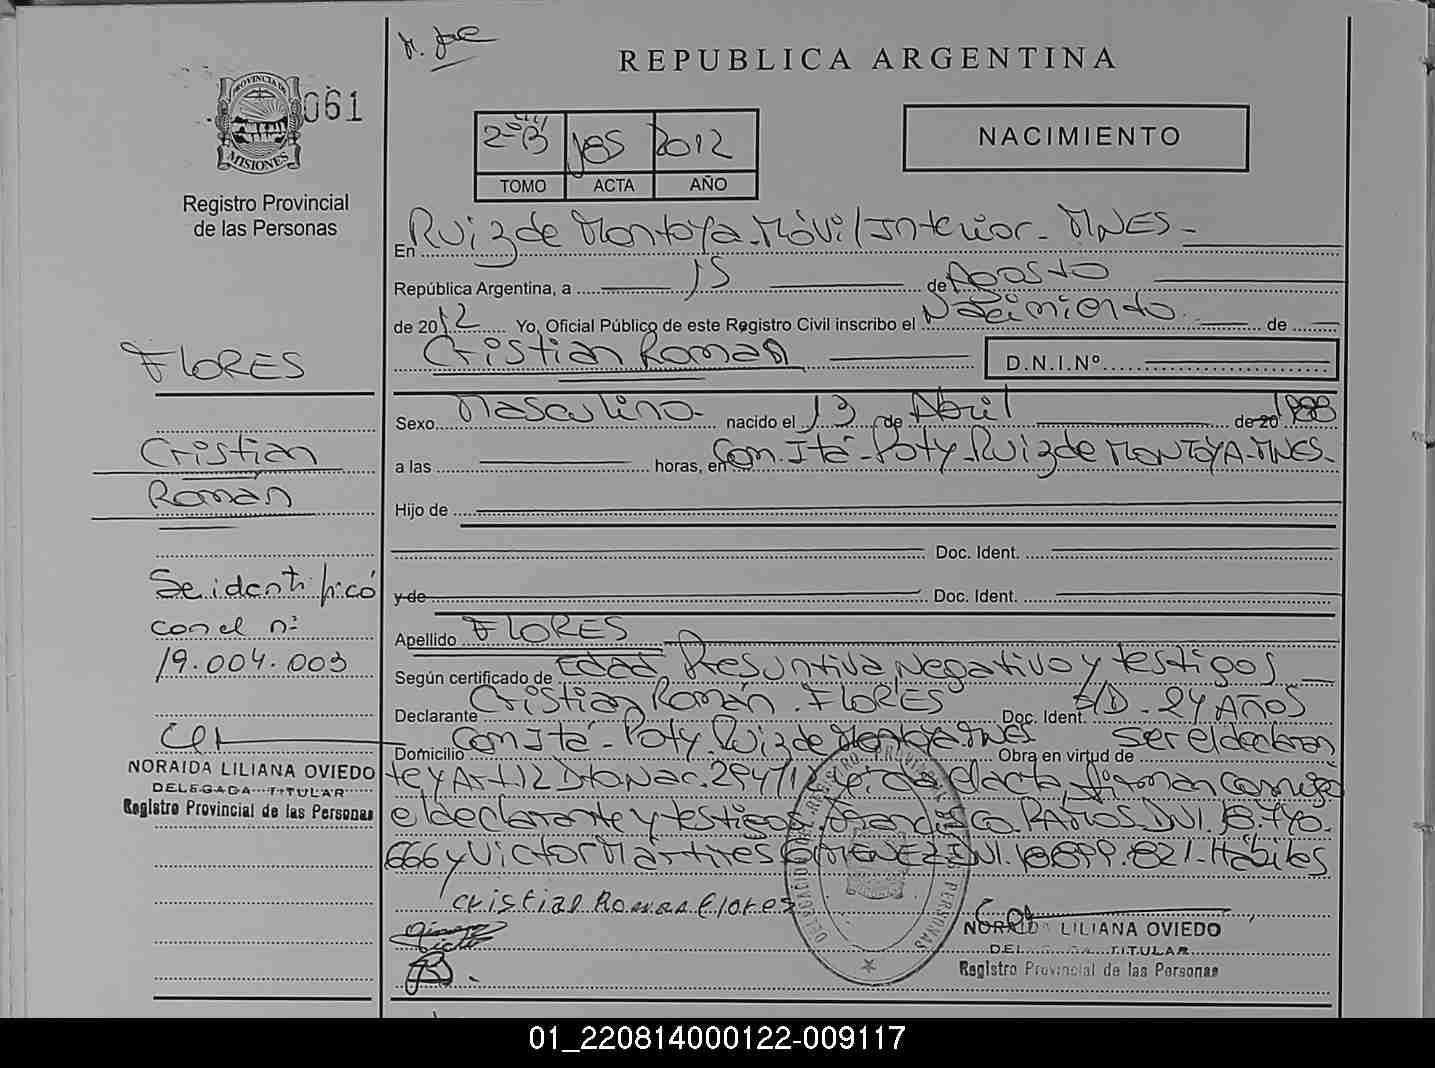 REPUBLICA ARGENTINA
PROVINCIA DE
MISIONES
061
Registro Provincial
de las Personas
2012
TOMO ACTA AÑO
NACIMIENTO
En Ruiz de Montoya - Móvil Interior - MNES -
República Argentina, a 15 de Agosto
de 2012 Yo, Oficial Público de este Registro Civil inscribo el Nacimiento de
Cristian Roman D.N.I.Nº
FLORES
Cristian
Román
Se identificó
con el nº
19.004.003
NORAIDA LILIANA OVIEDO
DELEGADA TITULAR
Registro Provincial de las Personas
Sexo Masculino - nacido el 13 de Abril de 20 1988
a las horas, en Com. Itá - Poty - Ruiz de MONTOYA - MNES -
Hijo de
Doc. Ident.
y de Doc. Ident.
Apellido FLORES
Según certificado de Edad Presuntiva Negativo y testigos
Declarante Cristian Román FLORES Doc. Ident. S/D - 24 AÑOS
Domicilio Com Itá - Poty Ruiz de Montoya MNES Obra en virtud de Ser el declaran
te y Art 12 Dto Nac. el acta, firman conmigo
el declarante y testigos Francisco RAMOS DNI.
666 y Victor Mártires GIMENEZ DNI. 18899.821 - Hábiles
Cristian Roman Flores
NORAIDA LILIANA OVIEDO
DELEGADA TITULAR
Registro Provincial de las Personas
01_220814000122-009117